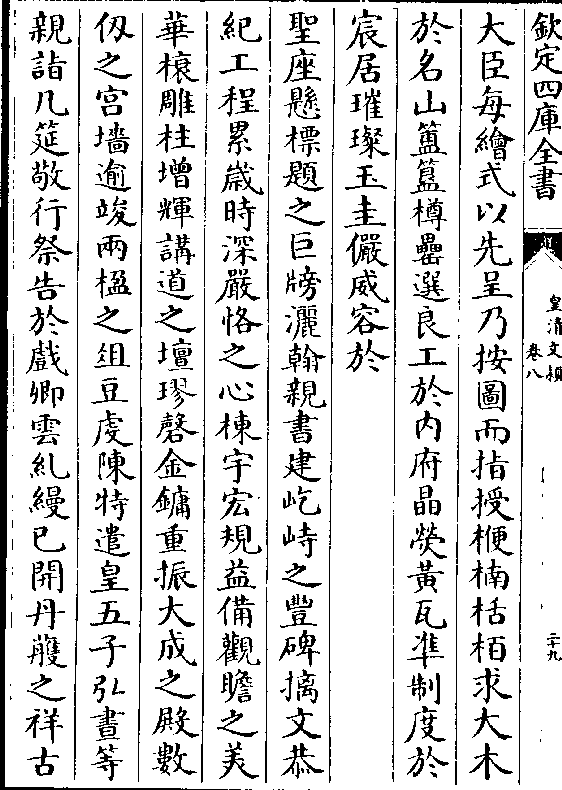 欽定四庫全書
皇清文穎
卷八
二十九
大臣每繪式以先呈乃按圖而指授楩楠栝栢求大木
於名山簠簋樽罍選良工於内府晶熒黃瓦準制度於
宸居璀璨玉圭儼威容於
聖座懸標題之巨牓灑翰親書建屹峙之豐碑摛文恭
紀工程累歲時深嚴恪之心棟宇宏規益備觀瞻之美
華榱雕柱增輝講道之壇璆磬金鏞重振大成之殿數
仭之宮墻逾竣兩楹之俎豆虔陳特遣皇五子弘晝等
親詣几筵敬行祭告於戲卿雲糺縵已開丹雘之祥古